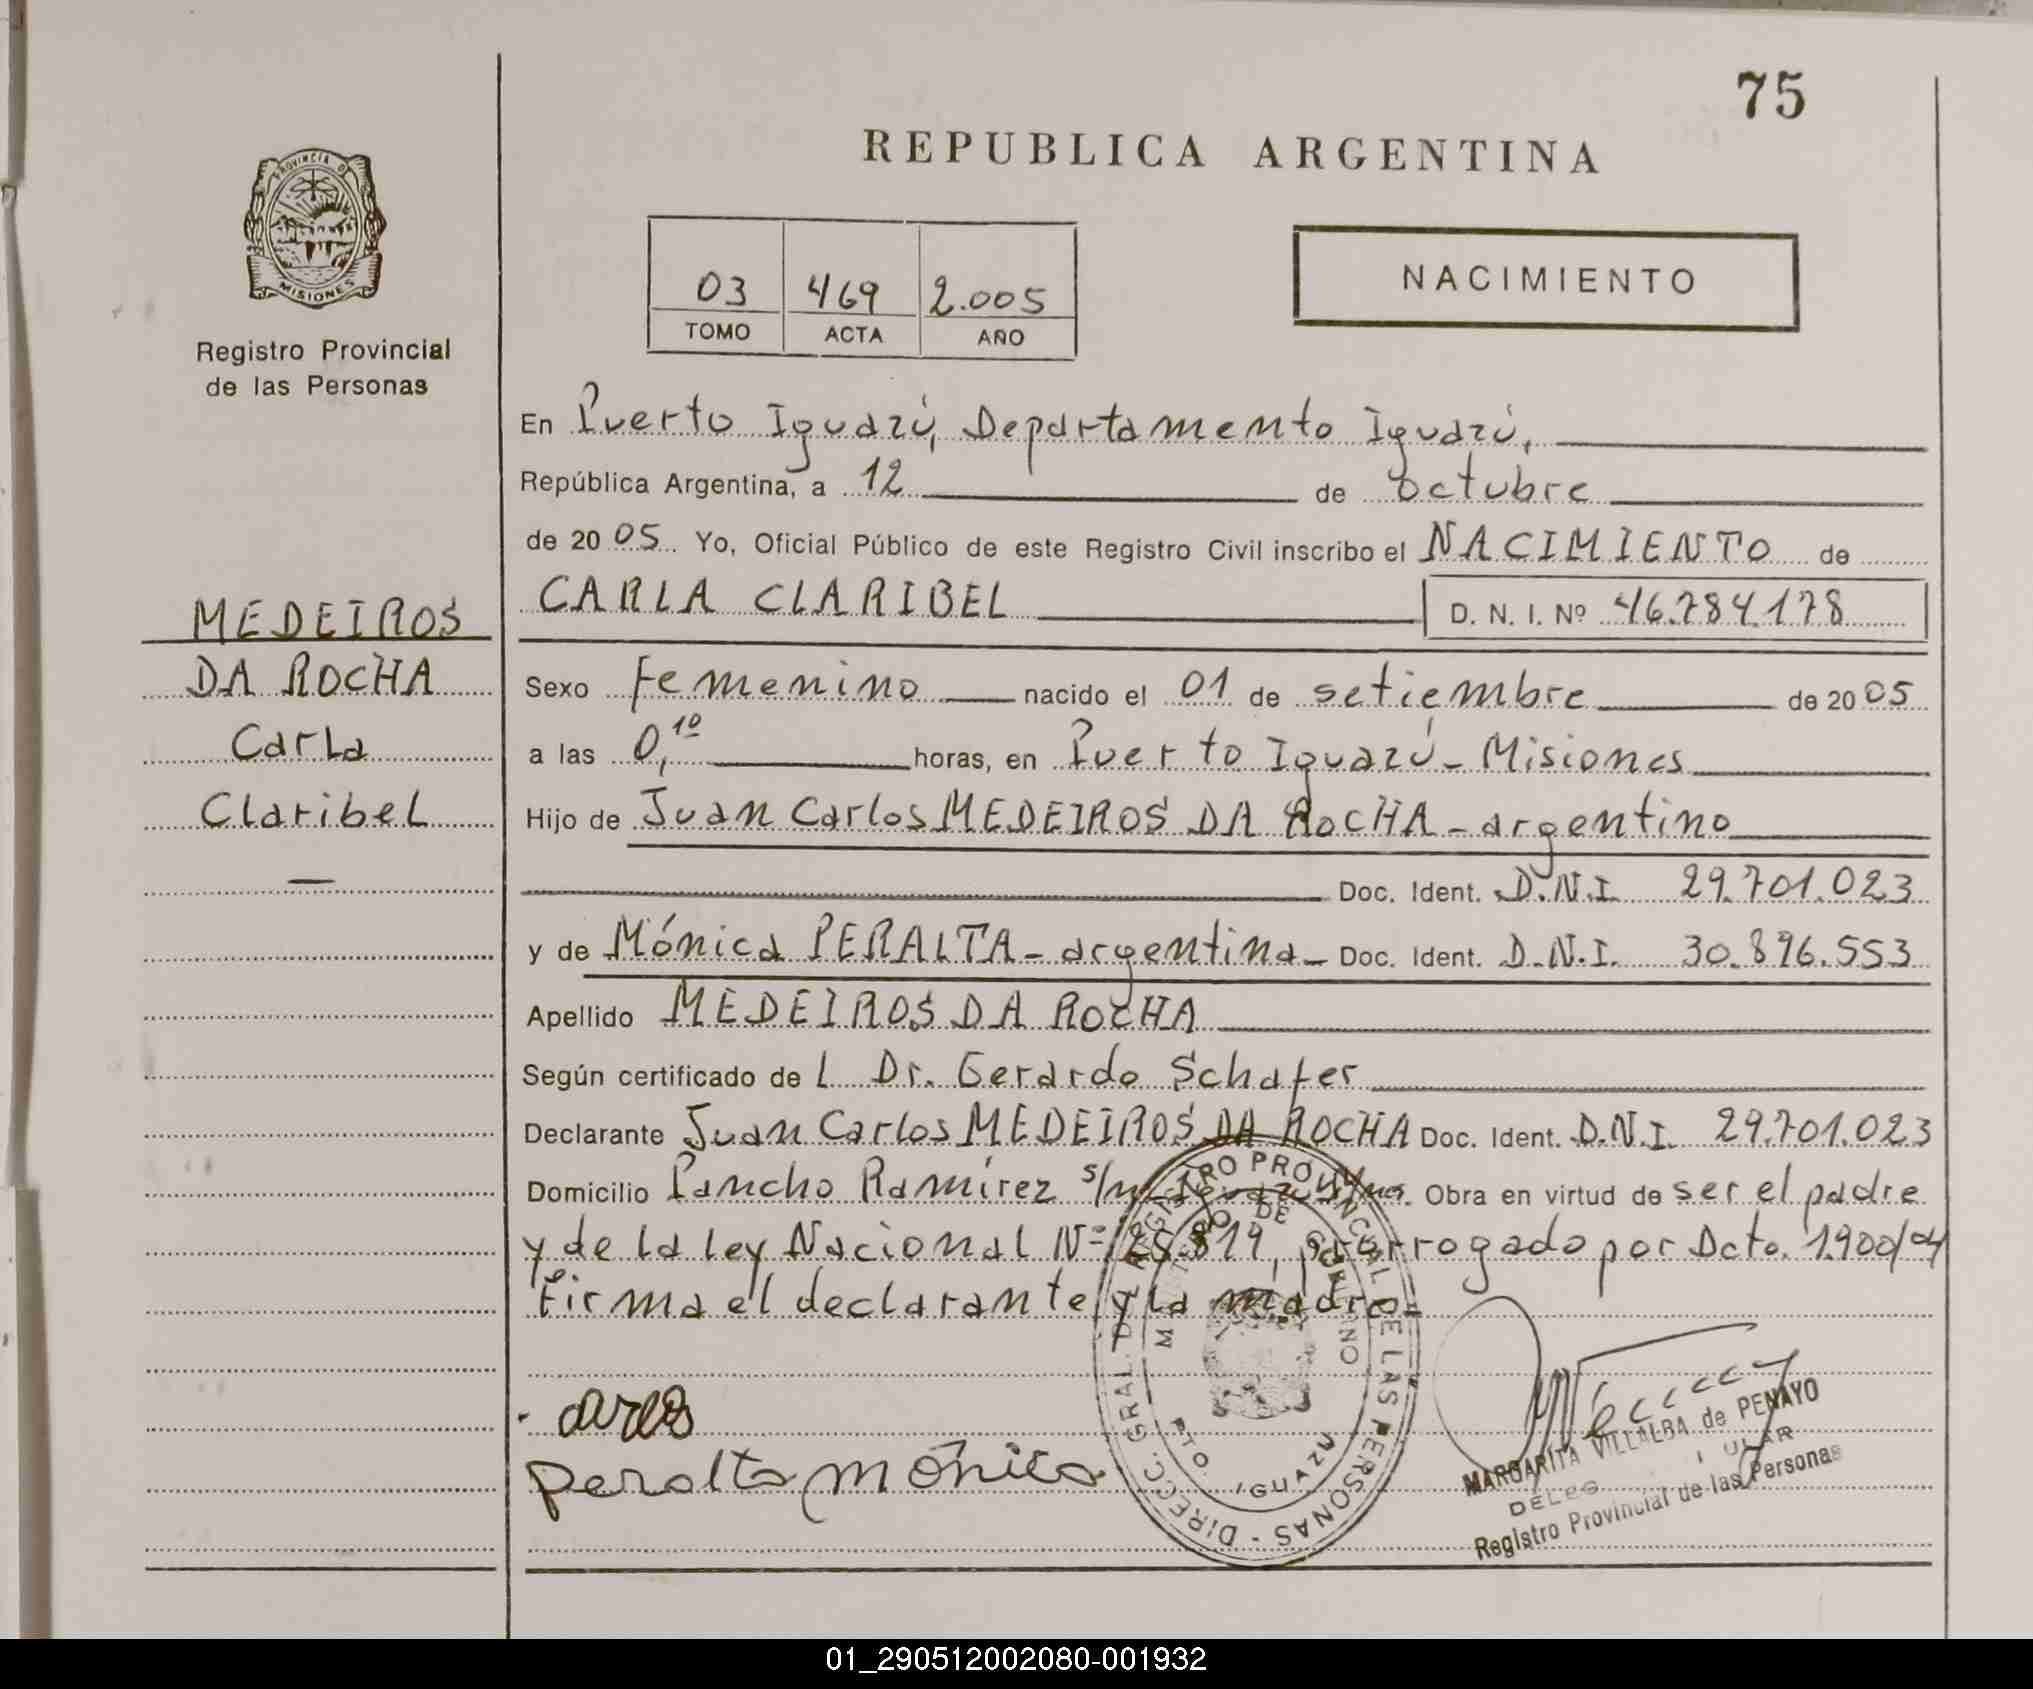 75
REPUBLICA ARGENTINA
PROVINCIA D
MISIONES
Registro Provincial
de las Personas
03 469 2.005
TOMO ACTA AÑO
NACIMIENTO
En Puerto Iguazú, Departamento Iguazú,
República Argentina, a 12 de octubre
de 20 05 Yo, Oficial Público de este Registro Civil inscribo el NACIMIENTO de
CARLA CLARIBEL D. N. I. Nº 46.784.178
MEDEIROS
DA ROCHA
Carla
Claribel
—
Sexo Femenino nacido el 01 de setiembre de 20 05
a las 0,10 horas, en Puerto Iguazú - Misiones
Hijo de Juan Carlos MEDEIROS DA ROCHA - argentino
Doc. Ident. D.N.I 29.701.023
y de Mónica PERALTA - argentina - Doc. Ident. D.N.I. 30.896.553
Apellido MEDEIROS DA ROCHA
Según certificado de L Dr. Gerardo Schafer
Declarante Juan Carlos MEDEIROS DA ROCHA Doc. Ident. D.N.I. 29.701.023
Domicilio Pancho Ramírez s/n - Obra en virtud de ser el padre
y de la ley Nacional Nº 25.819, prorrogado por Dcto. 1900/04
Firma el declarante y la madre
REGISTRO PROVINCIAL DE LAS PERSONAS - DIRECC. GRAL. DEL
MINISTERIO DE GOBIERNO
PTO. IGUAZU
Peralta mónica
MARGARITA VILLALBA de PENAYO
Registro Provincial de las Personas
01_290512002080-001932